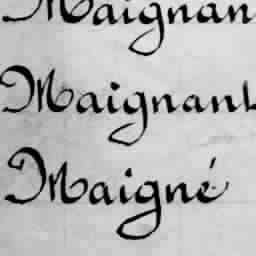 Maignan
Maignant
Maigné